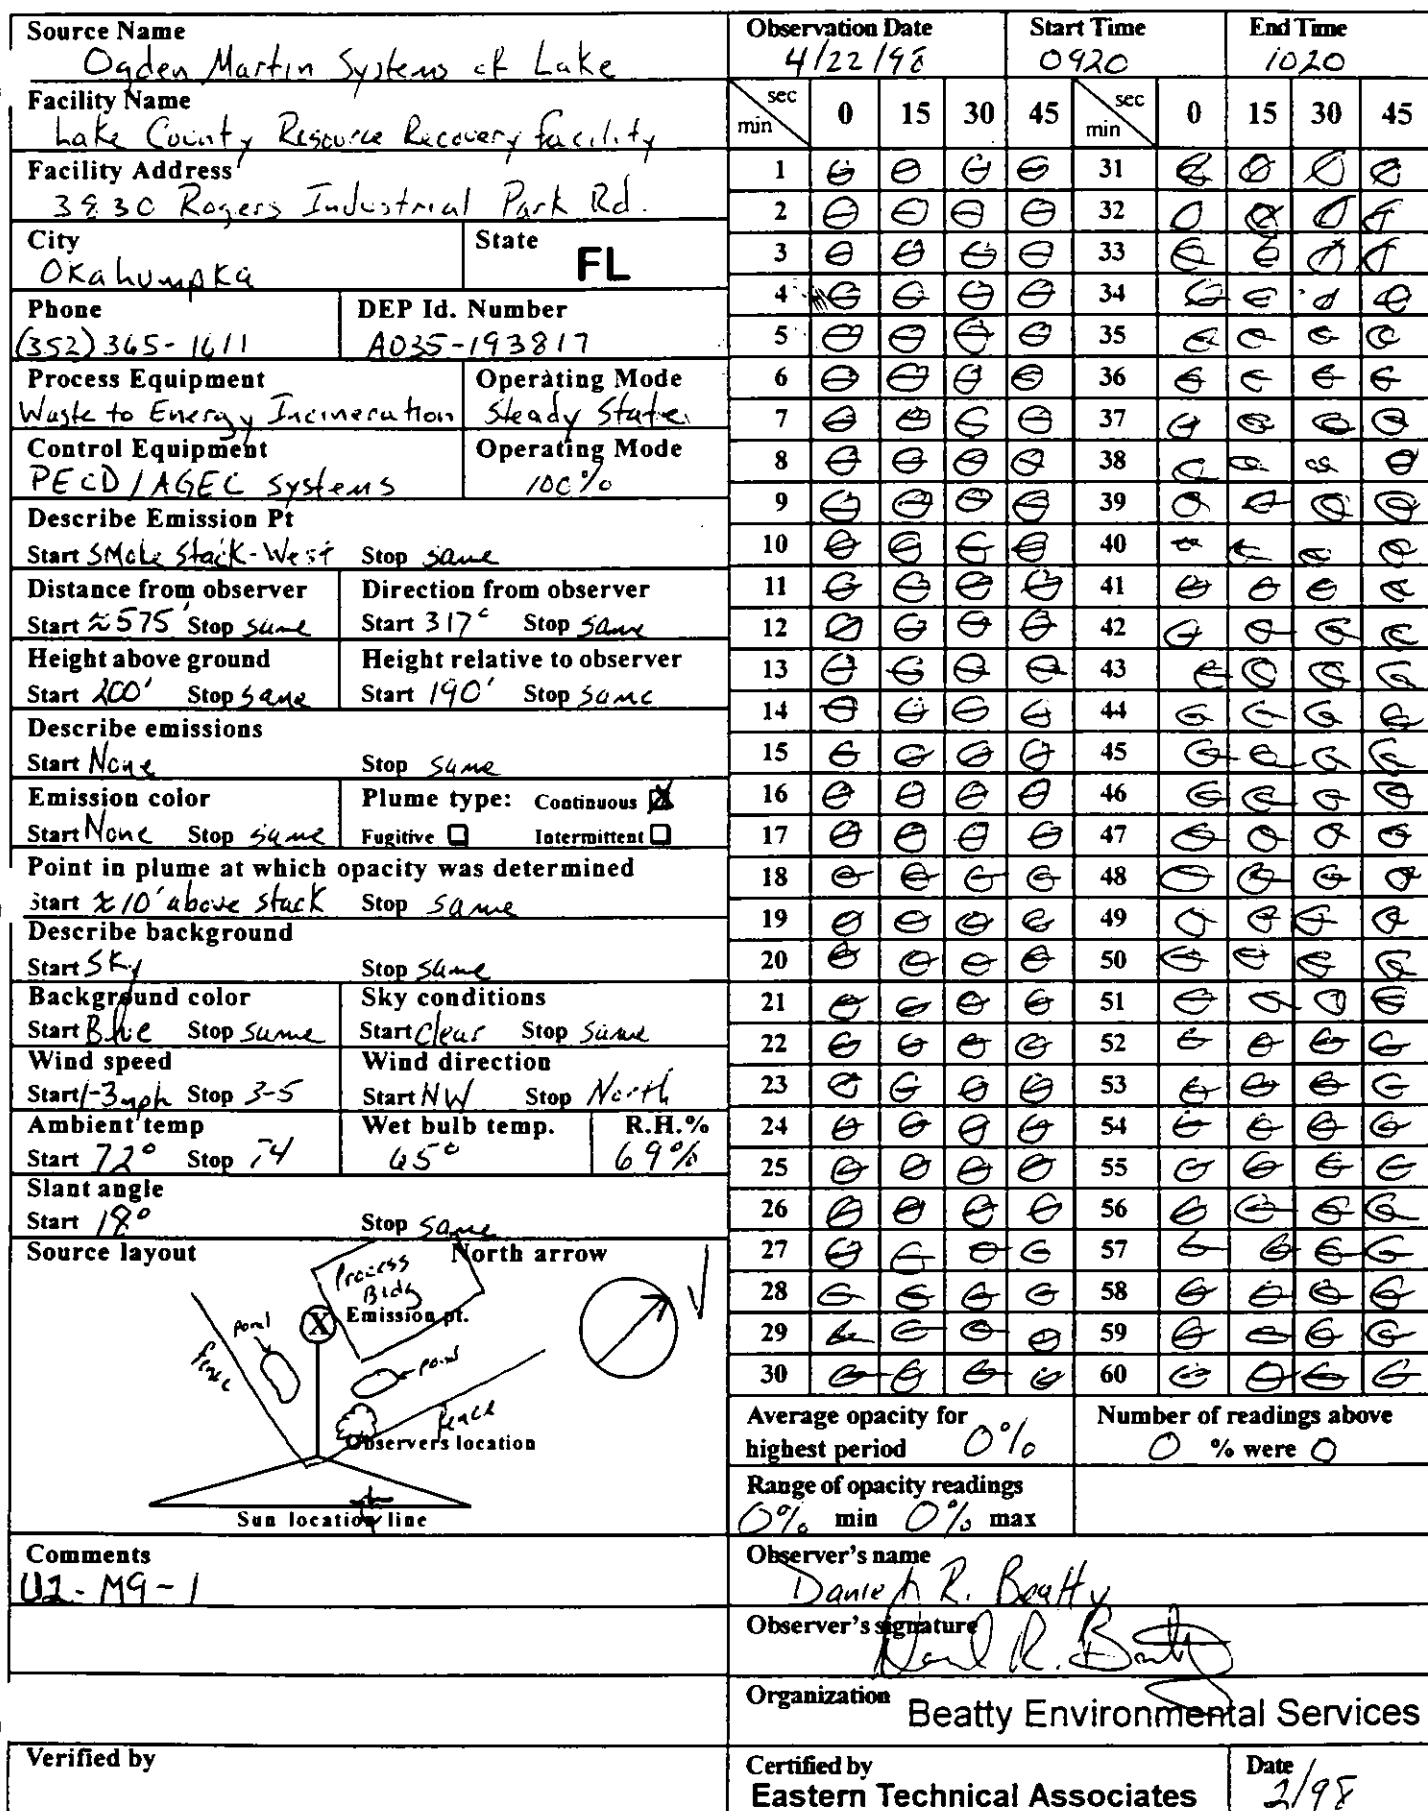 Source Name
Ogden Martin Systems of Lake
Facility Name
Lake County Resource Recovery facility
Facility Address
3830 Rogers Industrial Park Rd.
City State
Okahumpka FL
Phone DEP Id. Number
(352) 365-1611 AO35-193817
Process Equipment Operating Mode
Waste to Energy Incineration Steady State
Control Equipment Operating Mode
PECD/AGEC Systems 100%
Describe Emission Pt
Start Smoke Stack-West Stop same
Distance from observer Direction from observer
Start ≈575' Stop same Start 317° Stop same
Height above ground Height relative to observer
Start 200' Stop same Start 190' Stop same
Describe emissions
Start None Stop same
Emission color Plume type: Continuous ☒
Start None Stop same Fugitive ☐ Intermittent ☐
Point in plume at which opacity was determined
Start ≈10' above stack Stop same
Describe background
Start Sky Stop same
Background color Sky conditions
Start Blue Stop same Start Clear Stop same
Wind speed Wind direction
Start 1-3mph Stop 3-5 Start NW Stop North
Ambient temp Wet bulb temp. R.H.%
Start 72° Stop 74 65° 69%
Slant angle
Start 18° Stop same
Source layout North arrow
Process
Bldg
Emission pt.
X
pond
fence
pond
fence
Observers location
Sun location line
Comments
U2-M9-1
Verified by
Observation Date Start Time End Time
4/22/98 0920 1020
sec min 0 15 30 45 sec min 0 15 30 45
1 0 0 0 0 31 0 0 0 0
2 0 0 0 0 32 0 0 0 0
3 0 0 0 0 33 0 0 0 0
4 0 0 0 0 34 0 0 0 0
5 0 0 0 0 35 0 0 0 0
6 0 0 0 0 36 0 0 0 0
7 0 0 0 0 37 0 0 0 0
8 0 0 0 0 38 0 0 0 0
9 0 0 0 0 39 0 0 0 0
10 0 0 0 0 40 0 0 0 0
11 0 0 0 0 41 0 0 0 0
12 0 0 0 0 42 0 0 0 0
13 0 0 0 0 43 0 0 0 0
14 0 0 0 0 44 0 0 0 0
15 0 0 0 0 45 0 0 0 0
16 0 0 0 0 46 0 0 0 0
17 0 0 0 0 47 0 0 0 0
18 0 0 0 0 48 0 0 0 0
19 0 0 0 0 49 0 0 0 0
20 0 0 0 0 50 0 0 0 0
21 0 0 0 0 51 0 0 0 0
22 0 0 0 0 52 0 0 0 0
23 0 0 0 0 53 0 0 0 0
24 0 0 0 0 54 0 0 0 0
25 0 0 0 0 55 0 0 0 0
26 0 0 0 0 56 0 0 0 0
27 0 0 0 0 57 0 0 0 0
28 0 0 0 0 58 0 0 0 0
29 0 0 0 0 59 0 0 0 0
30 0 0 0 0 60 0 0 0 0
Average opacity for Number of readings above
highest period 0% 0 % were 0
Range of opacity readings
0% min 0% max
Observer's name
Daniel R. Beatty
Observer's signature
Daniel R. Beatty
Organization Beatty Environmental Services
Certified by Date
Eastern Technical Associates 2/98